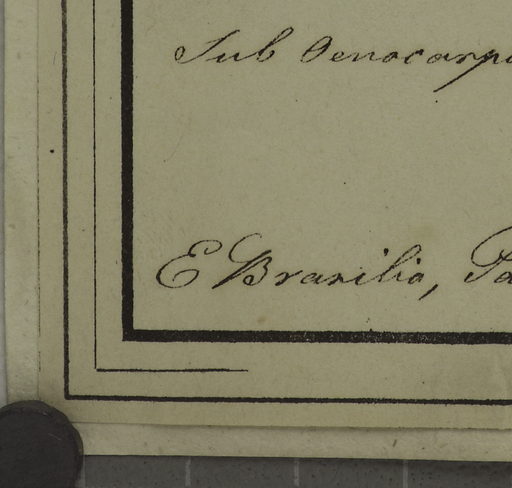 Sub Oenocarpu
E Brasilia, Pa